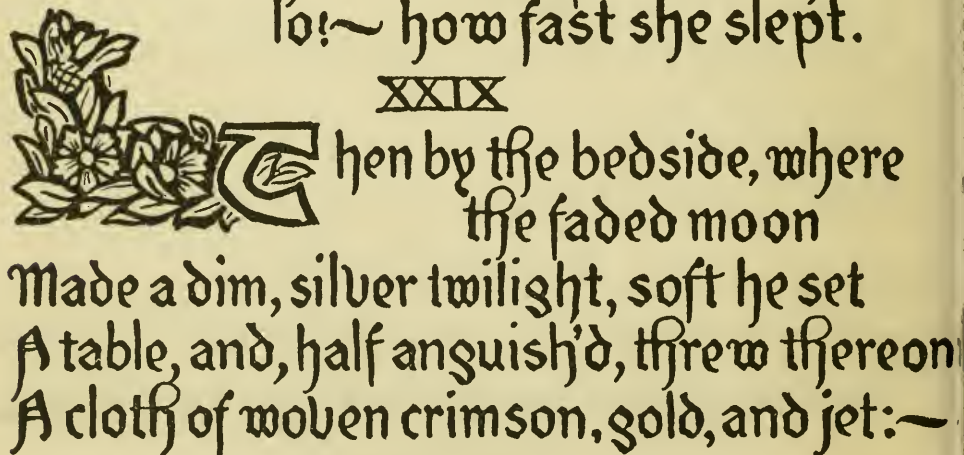 lo!~ how fast she slept.
XXIX
Then by the bedside, where
the faded moon
Made a dim, silver twilight, soft he set
A table, and, half anguish'd, threw thereon
A cloth of woven crimson, gold, and jet:~